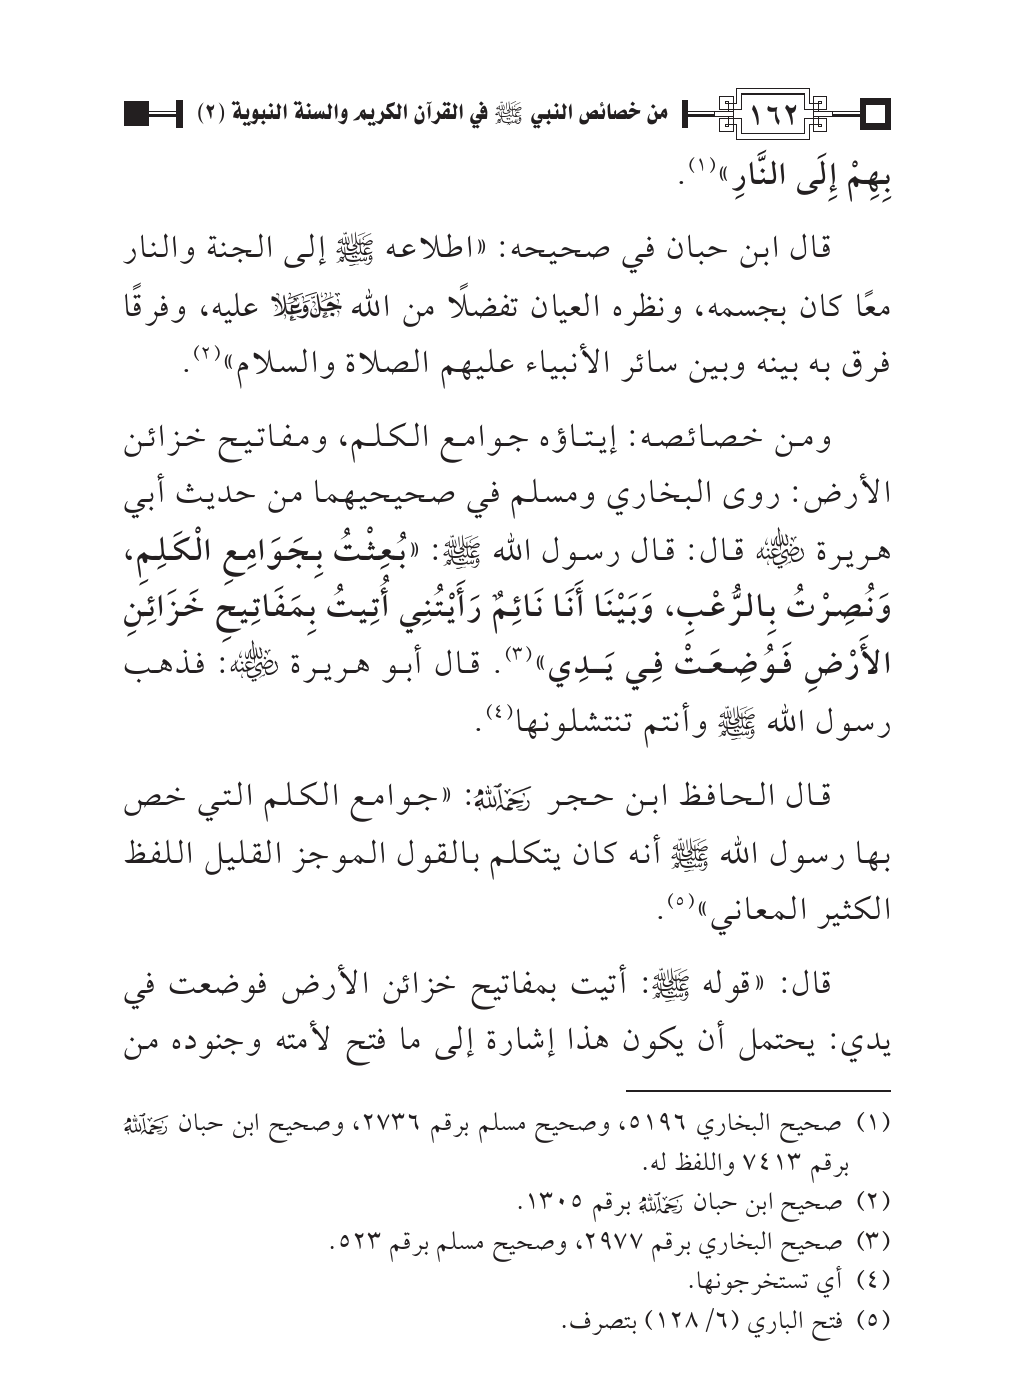 ١٦٢ من خصائص النبي ﷺ في القرآن الكريم والسنة النبوية (٢)
بِهِمْ إِلَى النَّارِ»(١).
قال ابن حبان في صحيحه: «اطلاعه ﷺ إلى الجنة والنار
معًا كان بجسمه، ونظره العيان تفضلًا من الله جَلَّ وَعَلَا عليه، وفرقًا
فرق به بينه وبين سائر الأنبياء عليهم الصلاة والسلام»(٢).
ومن خصائصه: إيتاؤه جوامع الكلم، ومفاتيح خزائن
الأرض: روى البخاري ومسلم في صحيحيهما من حديث أبي
هريرة رضي الله عنه قال: قال رسول الله ﷺ: «بُعِثْتُ بِجَوَامِعِ الْكَلِمِ،
وَنُصِرْتُ بِالرُّعْبِ، وَبَيْنَا أَنَا نَائِمٌ رَأَيْتُنِي أُتِيتُ بِمَفَاتِيحِ خَزَائِنِ
الأَرْضِ فَوُضِعَتْ فِي يَدِي»(٣). قال أبو هريرة رضي الله عنه: فذهب
رسول الله ﷺ وأنتم تنتشلونها(٤).
قال الحافظ ابن حجر رحمه الله: «جوامع الكلم التي خص
بها رسول الله ﷺ أنه كان يتكلم بالقول الموجز القليل اللفظ
الكثير المعاني»(٥).
قال: «قوله ﷺ: أتيت بمفاتيح خزائن الأرض فوضعت في
يدي: يحتمل أن يكون هذا إشارة إلى ما فتح لأمته وجنوده من
(١) صحيح البخاري ٥١٩٦، وصحيح مسلم برقم ٢٧٣٦، وصحيح ابن حبان رحمه الله
برقم ٧٤١٣ واللفظ له.
(٢) صحيح ابن حبان رحمه الله برقم ١٣٠٥.
(٣) صحيح البخاري برقم ٢٩٧٧، وصحيح مسلم برقم ٥٢٣.
(٤) أي تستخرجونها.
(٥) فتح الباري (٦/ ١٢٨) بتصرف.